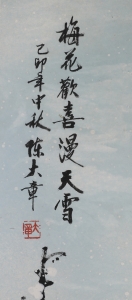 梅花歡喜漫天雪
己卯年中秋陈大章